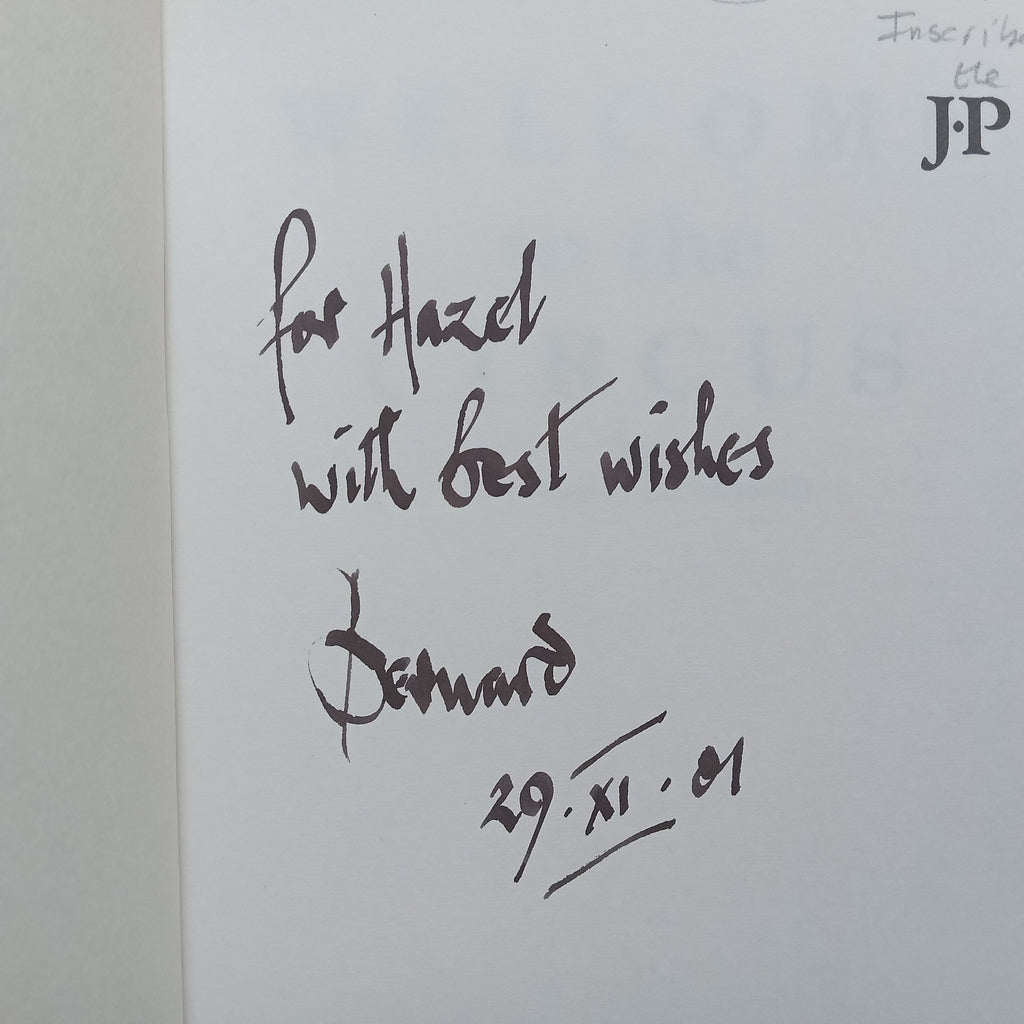 Inscrib
the
J·P
for Hazel
with best wishes
Bernard
29·XI·01